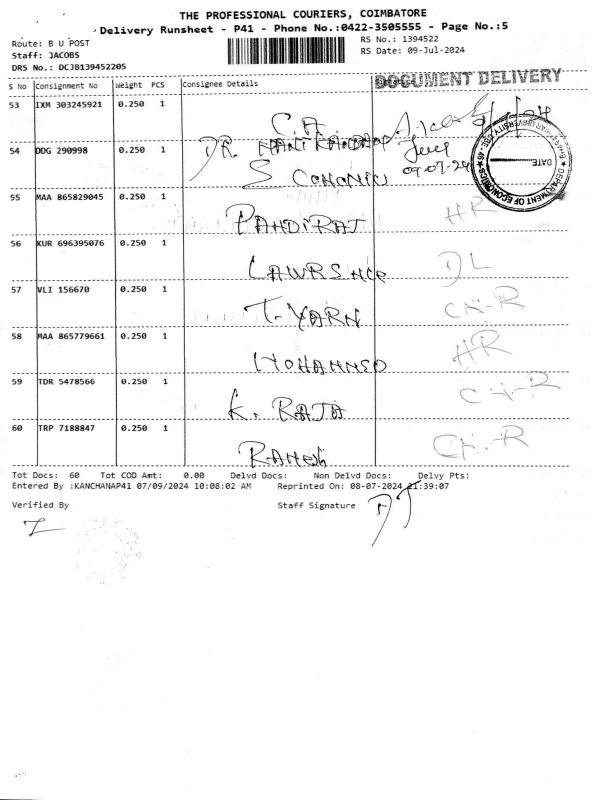 THE PROFESSIONAL COURIERS, COIMBATORE
Delivery Runsheet - P41 - Phone No.:0422-3505555 - Page No.:5
Route: B U POST
RS No.: 1394522
Staff: JACOBS
RS Date: 09-Jul-2024
DRS No.: DCJB139452205
S No Consignment No Weight PCS Consignee Details
DOCUMENT DELIVERY
53 IXM 303245921 0.250 1
C.A
54 DDG 290998 0.250 1 DR.
09-07-24
DATE
DEPARTMENT OF ECONOMICS
55 MAA 865829045 0.250 1
PANDIRAJ HR
56 KUR 696395076 0.250 1
LAWRSNCE DL
57 VLI 156670 0.250 1
T-YARN CH-R
58 MAA 865779661 0.250 1
MOHAMMED HR
59 TDR 5478566 0.250 1
K. RAJA CH-R
60 TRP 7188847 0.250 1
RAMESH CH-R
Tot Docs: 60 Tot COD Amt: 0.00 Delvd Docs: Non Delvd Docs: Delvy Pts:
Entered By :KANCHANAP41 07/09/2024 10:08:02 AM Reprinted On: 08-07-2024 21:39:07
Verified By Staff Signature